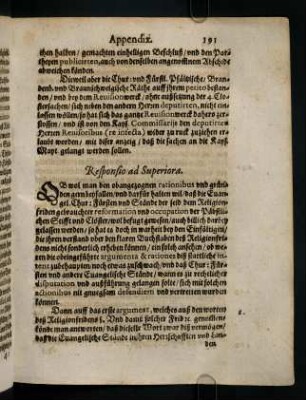 Appendix. 191
then halben / gemachten einhelligen Beschluß / vnd den Par-
theyen publicirten, auch von denselben angenommnen Abschide
abweichen könden.
Dieweil aber die Chur: vnd Fürstl. Pfältzische / Branden-
burg: vnd Braunschweigische Räthe auff ihrem petito bestan-
den / vnd bey dem Reuisionwerck / ohne außsetzung der 4. Clo-
stersachen / sich neben den andern Herren deputirten, nicht ein-
lassen wöllen / so hat sich das gantz Reuisionwerck dahero zer-
stossen / vnd ist von den Kays. Commissarijs den deputirten
Herren Reuisoribus (re infecta) wider zu ruck zuziehen er-
laubt worden / mit diser anzeig / daß die sachen an die Kays.
Mayt. gelangt werden sollen.
Responsio ad Superiora.
OB wol man den obangezognen rationibus vnd grün-
den gern beyfallen / vnd darfür halten will / daß die Euan-
gel. Chur: Fürsten vnd Stände der seid dem Religion-
friden gebrauchter reformation vnd occupation der Päbstli-
chen Stifft vnd Clöster / wol befugt gewesen / auch billich darbey
gelassen werden / so hat es doch in warheit bey den Einfältigen /
die ihren verstand ober den klaren Buchstaben deß Religionfri-
dens nicht sonderlich erheben können / einsolch ansehen / ob we-
ren die obeingeführte argumenta & rationes deß stattliche in-
tent zubehaupten / noch etwas zuschwach / vnd daß Chur: Für-
sten vnd andere Euangelische Stände / wann es zu rechtlicher
disputation vnd außführung gelangen solte / sich mit solchen
rationibus nit gnugsam defendiren vnd vertretten wurden
können.
Dann auff das erste argument, welches auß den worten 1.
deß Religionfridens §. Vnd damit solcher Frid &c. genommen
könde man antworten / daß dieselbe Wort zwar diß vermögen /
daß die Euangelische Stände in ihren Herrschafften vnd Lan-
den